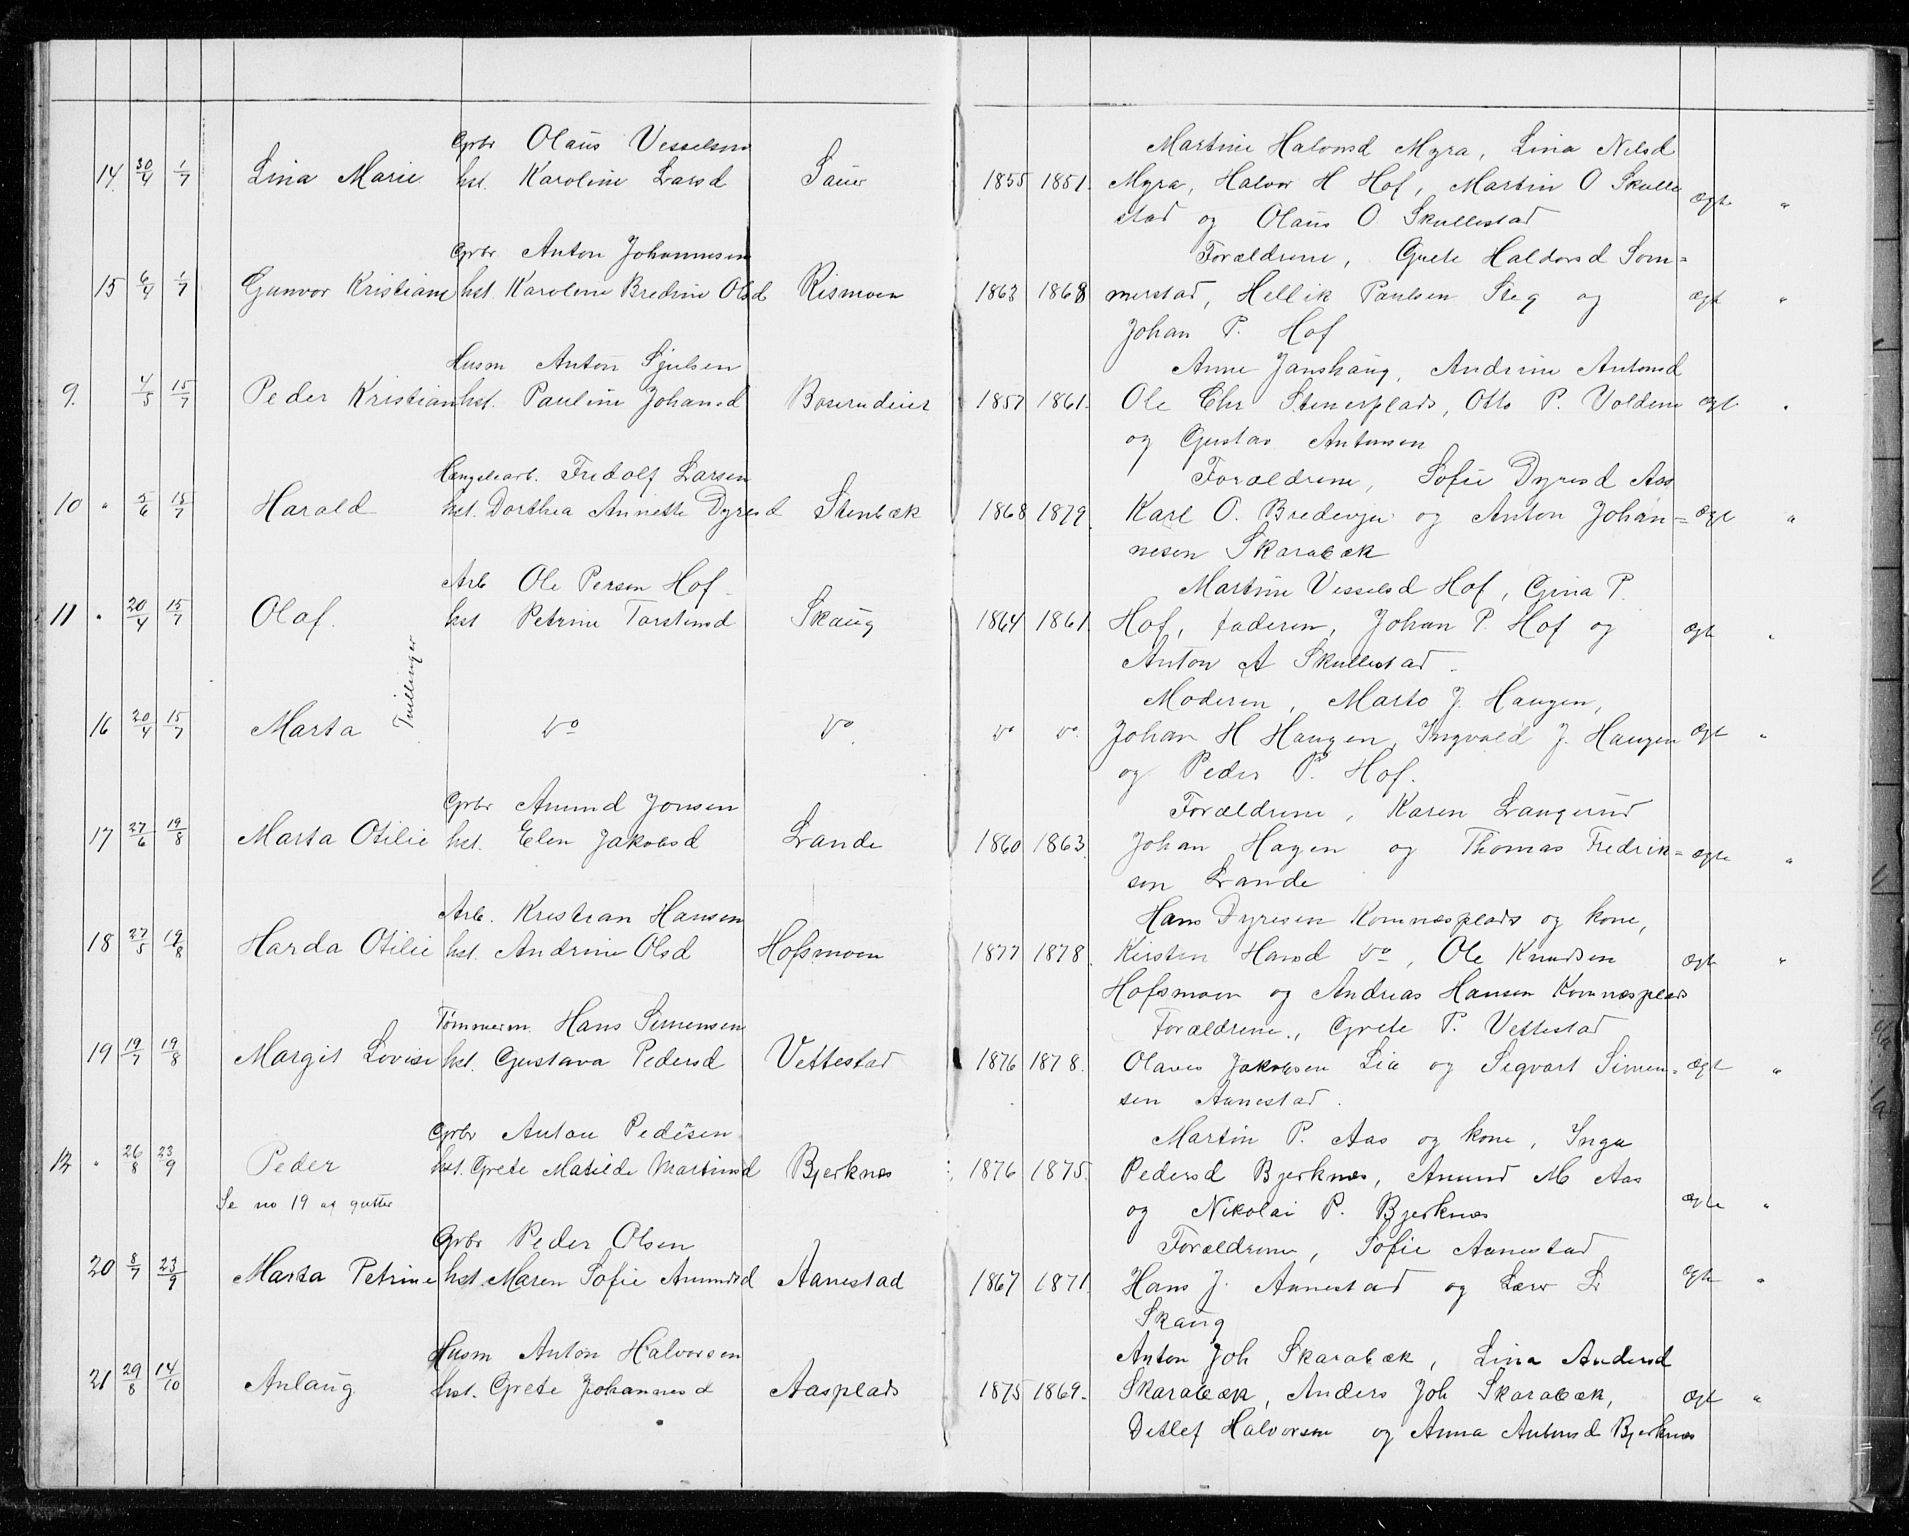 Gbr Olaus Vesselsen
Martine Halvorsd Myra, Lina Nilsd
14. 30/4 1/7 Lina Marie hst. Karoline Larsd Sauer 1855 1851. Myra, Halvor H Hof, Martin O Skulle
stad og Olaus O. Skullestad ægte "
Gbr Anton Johannesen
Forældrene, Grete Haldorsd Som=
15 6/4 1/7 Gunvor Kristiane hst. Karoline Bredine Olsd Rismoen 1863 1868 merstad, Hellik Paulsen Steg og ægt "
Johan P. Hof
Husm Anton Sjulsen
Anne Janshaug, Andrine Antonsd
9. 4/5 15/7 Peder Kristian hst. Pauline Johansd Boserudeier 1857 1861. Ole Chr Stenerplads, Otto P. Voldene ægt "
og Gustav Antonsen
Længslearb. Fridolf Larsen
Forældrene, Sofie Dyresd Aas
10 " 5/6 15/7 Harald hst. Dorthea Annette Dyresd Stenbæk 1868 1879. Karl O. Bredevjei og Anton Johan= ægt "
nesen Skarabæk
Arb Ole Persen Hof
Martine Vesselsd Hof, Gina P.
11 " 20/4 15/7 Olaf. hst Petrine Torstensd Skaug 1864 1861. Hof, faderen, Johan P. Hof og ægte "
Anton A Skullestad.
Tvillinger
Moderen, Marte J. Haugen,
16 20/4 15/7 Marta do do do do Johan H Haugen, Ingvald J. Haugen ægt "
og Peder P. Hof.
Gbr Amund Jonsen
Forældrene, Karen Langerud
17 27/6 19/8 Marta Otilie hst. Elen Jakobsd Lande 1860 1863. Johan Hagen og Thomas Fredrik= ægte "
sen Lande
Arb. Kristian Hansen
Hans Dyresen Komnæsplads og kone,
18 27/5 19/8 Harda Otilie hst. Andrine Olsd Hofsmoen 1877 1878. Kirsten Hansd do, Ole Knudsen ægt "
Hofsmoen og Andreas Hansen Komnæsplads
Tømmerm. Hans Simensen
Forældrene, Grete P. Vettestad
19 19/7 19/8 Margit Lovise hst. Gustava Pedersd Vettestad 1876 1878. Olaves Jakobsen Lia og Segvart Simen= ægt "
sen Aanestad.
Gbr Anton Pedersen
Martin P. Aas og kone, Inga
12 " 26/8 23/9 Peder hst. Grete Matilde Martinsd Bjerknes 1876 1875. Pedersd Bjerknes, Amund M Aas
Se no 19 af gutter
og Nikolai P. Bjerknes ægte "
Gbr Peder Olsen
Forældrene, Sofie Aanestad
20 8/7 23/9 Marta Petrine hst. Maren Sofie Amundsd Aanestad 1867 1871. Hans J. Aanestad og Lars L ægte "
Skaug
Husm Anton Halvorsen
Anton Joh Skarabæk, Lina Andersd
21 29/8 14/10 Anlaug hst. Grete Johannesd Aasplads 1875 1869. Skarabæk, Anders Joh Skarabæk, ægt "
Detlef Halvorsen og Anna Antonsd Bjerknes